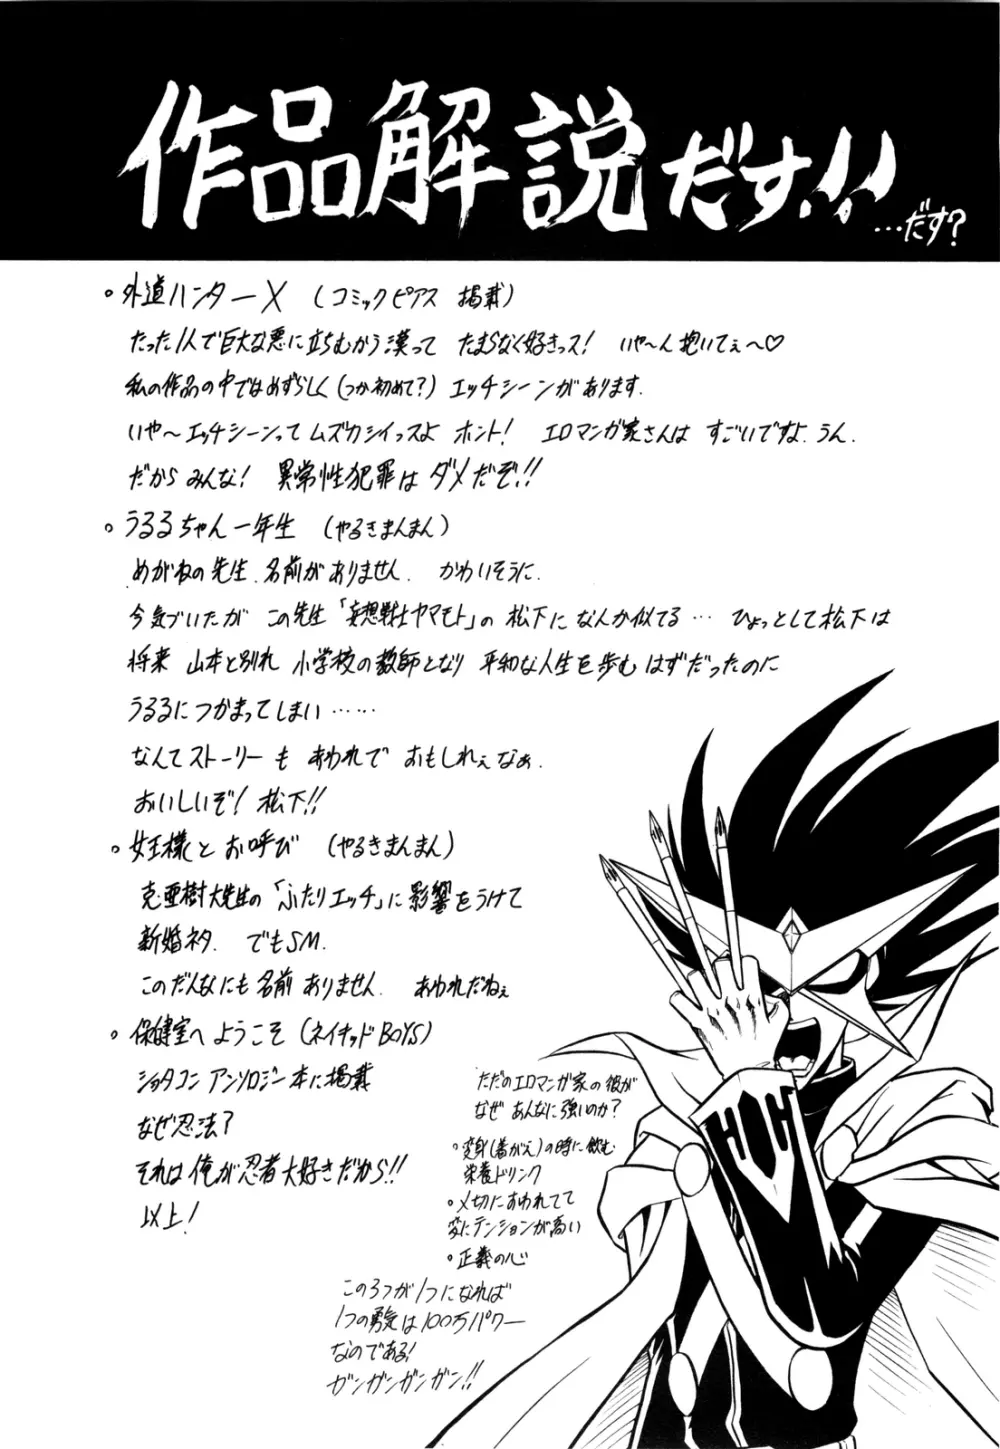 作品解説だす!!
…だす?
。外道ハンターX (コミックピアス 掲載)
たった1人で巨大な悪に立ちむかう漢って たまらなく好きっス! いや〜ん抱いてぇ〜♡
私の作品の中ではめずらしく(つか初めて?) エッチシーンがあります.
いや〜エッチシーンって ムズカシイっスよ ホント! エロマンガ家さんは すごいですよ.うん.
だから みんな! 異常性犯罪は ダメだぞ!!
。うるるちゃん一年生 (やるきまんまん)
めがねの先生.名前がありません. かわいそうに.
今気づいたが この先生「妄想戦士ヤマモト」の 松下に なんか似てる… ひょっとして松下は
将来 山本と別れ 小学校の教師となり 平和な人生を歩む はずだったのに
うるるにつかまってしまい……
なんてストーリーも あわれで おもしれぇなぁ.
おいしいぞ! 松下!!
。女王様と お呼び (やるきまんまん)
克亜樹大先生の「ふたりエッチ」に影響をうけて
新婚ネタ. でもSM.
このだんなにも 名前 ありません. あわれだねぇ
。保健室へ ようこそ (ネイキッドBOYS)
ショタコン アンソロジー本に掲載
なぜ忍法?
それは 俺が忍者大好きだから!!
以上!
ただのエロマンガ家の彼が
なぜ あんなに強いのか?
。変身(着がえ)の時に飲む
栄養ドリンク
。〆切におわれてて
変にテンションが高い
。正義の心
この3つが1つになれば
1つの勇気は100万パワー
なのである!
ガンガンガンガン!!
HVH